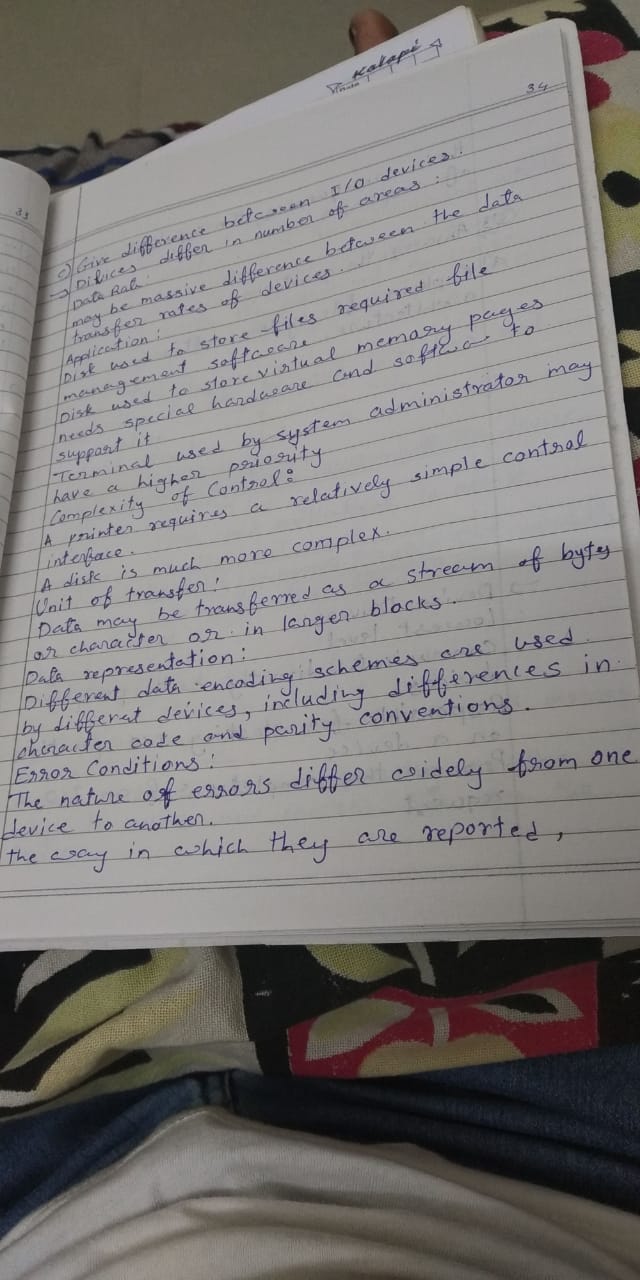 Kalapi
34
33
c) Give difference between I/O devices.
→ Divices differ in number of areas :
Data Rate
may be massive difference between the data
transfer rates of devices.
Application :
Disk used to store files required file
management software
Disk used to store virtual memory pages
needs special hardware and software to
support it
Terminal used by system administrator may
have a higher priority
Complexity of Control :
A printer requires a relatively simple control
interface.
A disk is much more complex.
Unit of transfer :
Data may be transferred as a stream of bytes
or character or in larger blocks.
Data representation :
Different data encoding schemes are used
by differet devices, including differences in
character code and parity conventions.
Error Conditions :
The nature of errors differ widely from one
device to another.
the way in which they are reported,